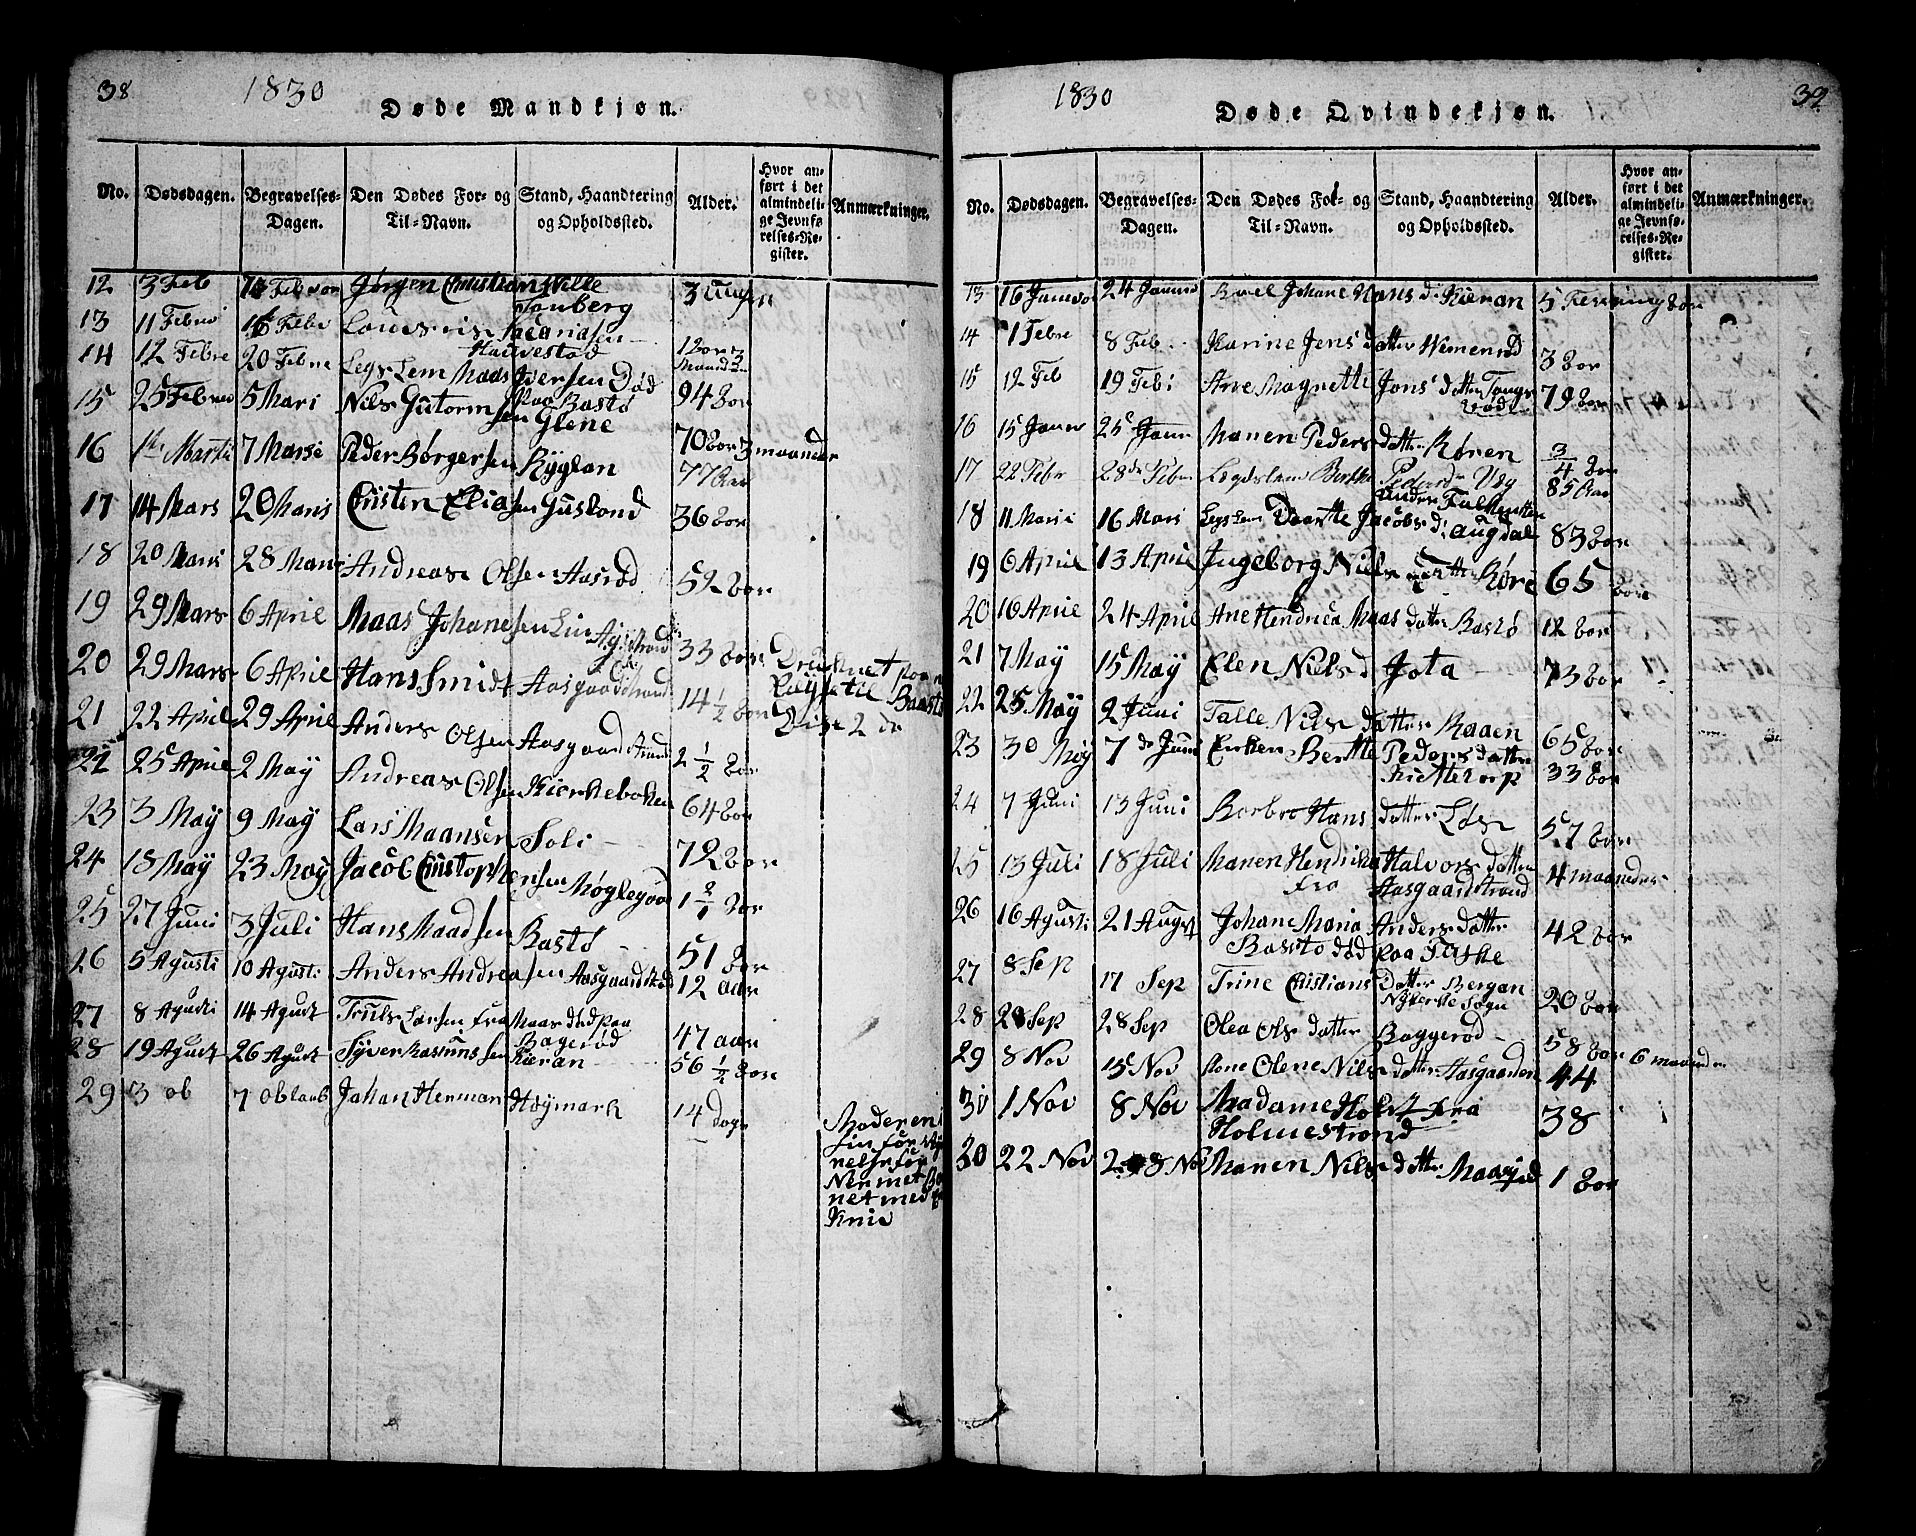 38 1830 Døde Mandkjøn.
No. Dødsdagen. Begravelses-Dagen. Den Dødes For- og Til-Navn. Stand, Haandtering og Opholdssted. Alder. Hvor anført i det almindelige Jevnførelses-Register. Anmærkninger.
12 3 Feb Jørgen Christian Wille
Tonberg
13 11 Febru Febr
Hauvestad 1 2or 3
14 12 Febre 20 Febre Legs Lem Maas Iversen Død
paa Bastø 94 Eor
15 25 Februa 5 Mari Nils Gutormsen Glene 70 Eor 3 maander
16 1te Marti 7 Marsi Peder Børgersen Ryglan 77 Aar
17 14 Mars 20 Maris Cristen Eliasen Guslond 36 Eor
18 20 Maris 28 Mari Andreas Olsen Aasrød 52 Eor
19 29 Mars 6 April Maas Johanesen 33 Eor Druchnet paa
20 29 Mars 6 April Hans Smidt Aasgaardstrand 14 1/2 Eor Reyse til Baastø
Dise 2 de
21 22 April 29 April Anders Olsen Aasgaard Strand 2 1/2 Eor
22 25 April 2 May Andreas Olsen Kierkeboken 64 Eor
23 3 May 9 May Lars Maansen Soli 72 Eor
24 18 May 23 May Jacob Cristophersen Møglegod 1 Eor
25 27 Juni 3 Juli Hans Maadsen Bastø 51 Eor
26 5 Agusti 10 Agusti Anders Andreasen Aasgaardstrad 12 aar
27 8 Agusti 14 Agust Truls Larsen fra Maas død paa
Bagerød 47 aar
28 19 Agust 26 Agust Syver Rasmussen Kieran 56 1/2 Eor
29 3 ob 7 Oblaub Johan Herman Høymark 14 dage
Moderen
sin før
Knie
1830 Døde Qvindekjøn. 39
No. Dødsdagen. Begravelses-Dagen. Den Dødes For- og Til-Navn. Stand, Haandtering og Opholdssted. Alder. Hvor anført i det almindelige Jevnførelses-Register. Anmærkninger.
13 16 Januar 24 Januar Johane Hans d Kieran 5
14 1 Febre 8 Feb Karine Jens datter Wemenrød 3 Eor
15 12 Feb 19 Febr Ane Magnette Jons datter 79 Eor
16 15 Janer 25 Janr Maren Peders datter Røren 3/4 Eor
17 22 Febr 28de Febr Legdslem Berthe Peders d Vig 85 Aar
18 11 Marie 16 Mars Legs Lem Dorte Jacobs d Augdal 83 Eor
19 6 April 13 April Ingeborg Niels datter Røre 65 Eor
20 16 April 24 April Ane Hendrica Maas datter Bastø 12 Eor
21 7 May 15 May Elen Niels d Jota 73 Eor
22 25 May 2 Juni Talle Nils datter Raaen 65 Eor
23 30 May 7de Juni Enken Berthe Peders datter
Kichetorp 33 Eor
24 7 Juni 13 Juni Borbro Hans datter Løse 57 Eor
25 13 Juli 18 Juli Maren Hendrika Halvors datter
fra Aasgaardstrand 4 maaneder
26 16 Agusti 21 Augst Johane Maria Anders datter
Bassto død paa Fiske 42 Eor
27 8 Sep 17 Sep Trine Cristians Datter Bergan
Nykerke Sogn 20 Eor
28 20 Sep 28 Sep Olea Ols datter Baggerød 58 Eor 6 maander
29 8 Nov 15 Nov Ane Olene Nils datter Aasgaarden 44
30 1 Nov 8 Nov Madame Holst fra
Holmestrand 38
30 22 Nov 28 Nov Maren Nils datter 1 Eor